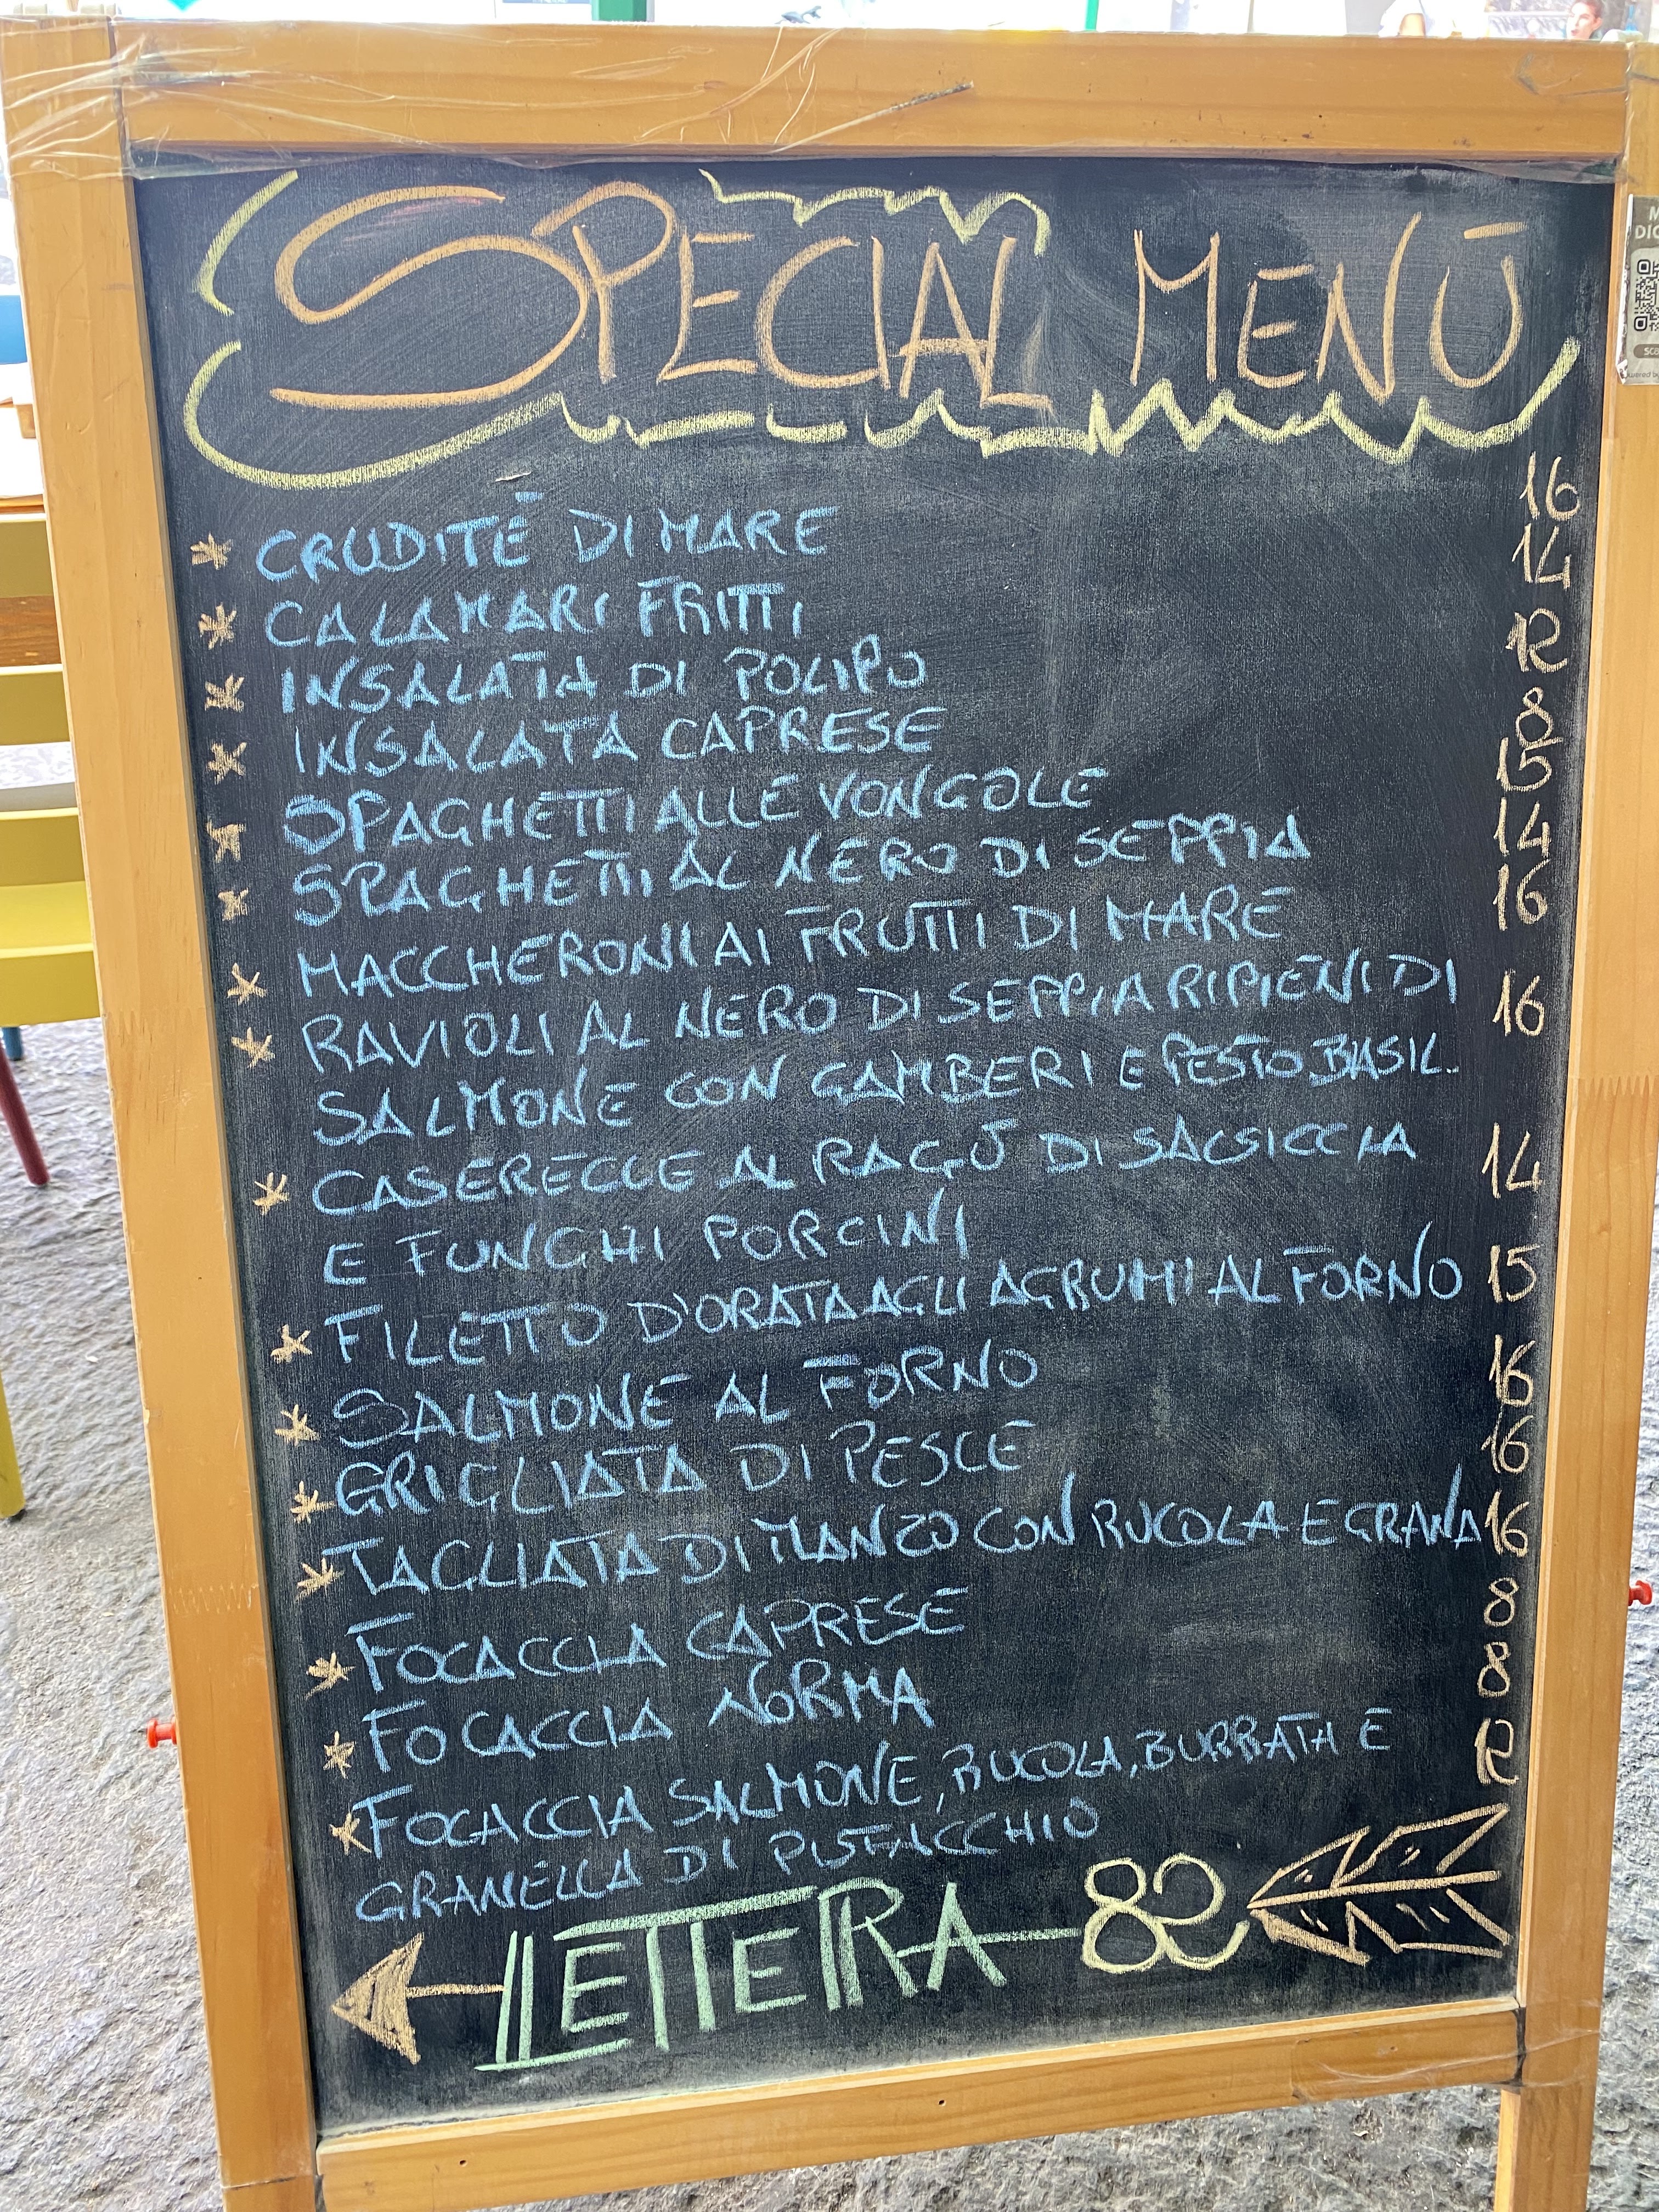 SPECIAL MENŪ
* CRUDITÉ DI MARE 16
* CALAMARI FRITTI 14
* INSALATA DI POLIPO 12
* INSALATA CAPRESE 8
* SPAGHETTI ALLE VONGOLE 15
* SPAGHETTI AL NERO DI SEPPIA 14
* MACCHERONI AI FRUTTI DI MARE 16
* RAVIOLI AL NERO DI SEPPIA RIPIENI DI 16
SALMONE CON GAMBERI E PESTO BASIL.
* CASERECCE AL RAGÚ DI SALSICCIA 14
E FUNGHI PORCINI
* FILETTO D'ORATA AGLI AGRUMI AL FORNO 15
* SALMONE AL FORNO 16
* GRIGLIATA DI PESCE 16
* TAGLIATA DI MANZO CON RUCOLA E GRANA 16
* FOCACCIA CAPRESE 8
* FOCACCIA NORMA 8
* FOCACCIA SALMONE, RUCOLA, BURRATA E 12
GRANELLA DI PISTACCCHIO
LETTERA 82